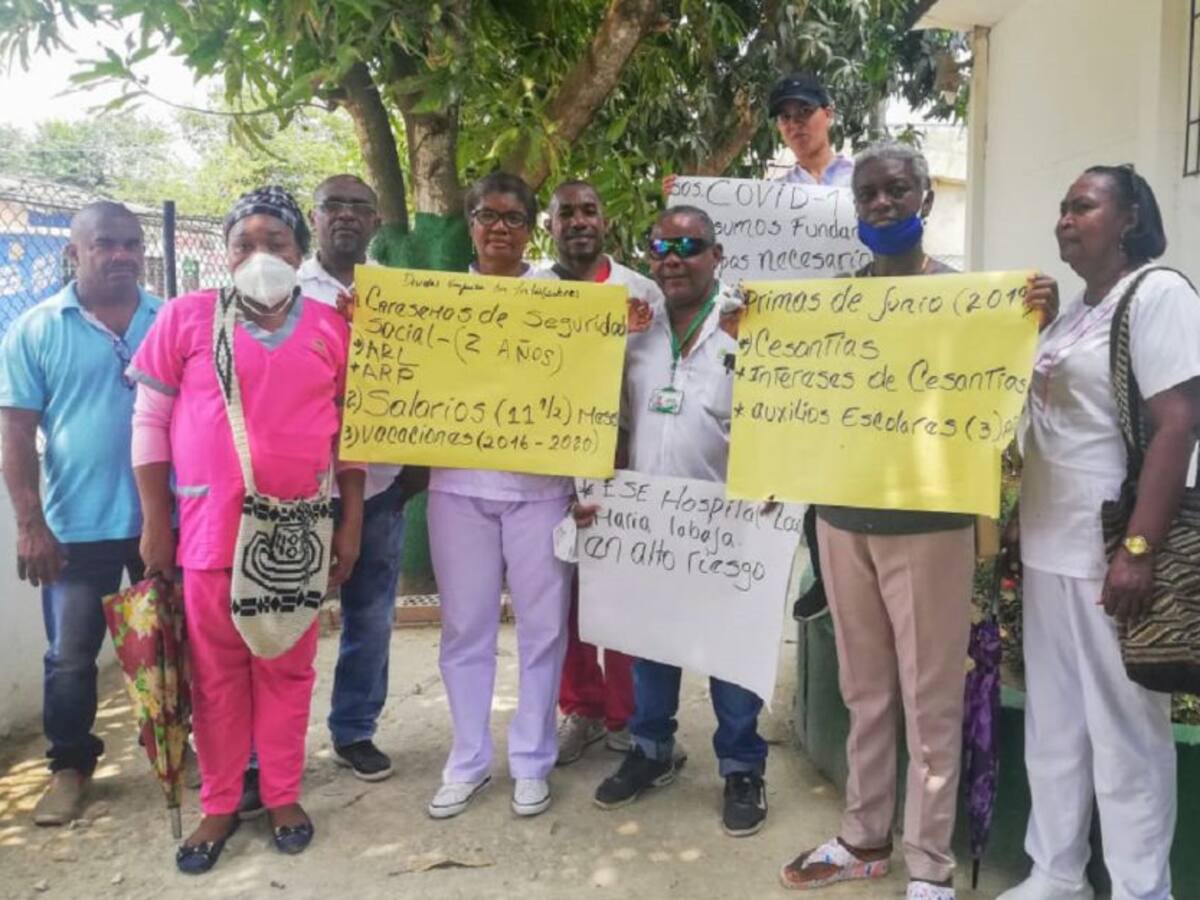 Deudas Empresa con Trabajadores
Caresemos de Seguridad
Social - (2 AÑOS)
*ARL
*ARP
2) Salarios (11 1/2) Mese
3) Vacaciones (2016-2020)
SOS. COVID-1
sumos Fundam
opas necesario
Primas de Junio (2019
*) Cesantías
*Interases de Cesantías
* auxilios Escolares (3) A
* ESE Hospital Loc
Maria labaja.
en alto riesgo